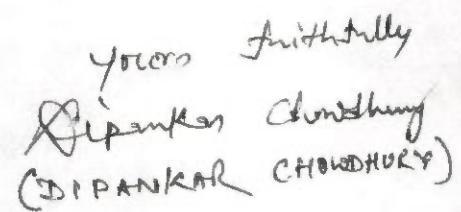 Yours faithfully
Dipankar Chowdhury
(DIPANKAR CHOWDHURY)